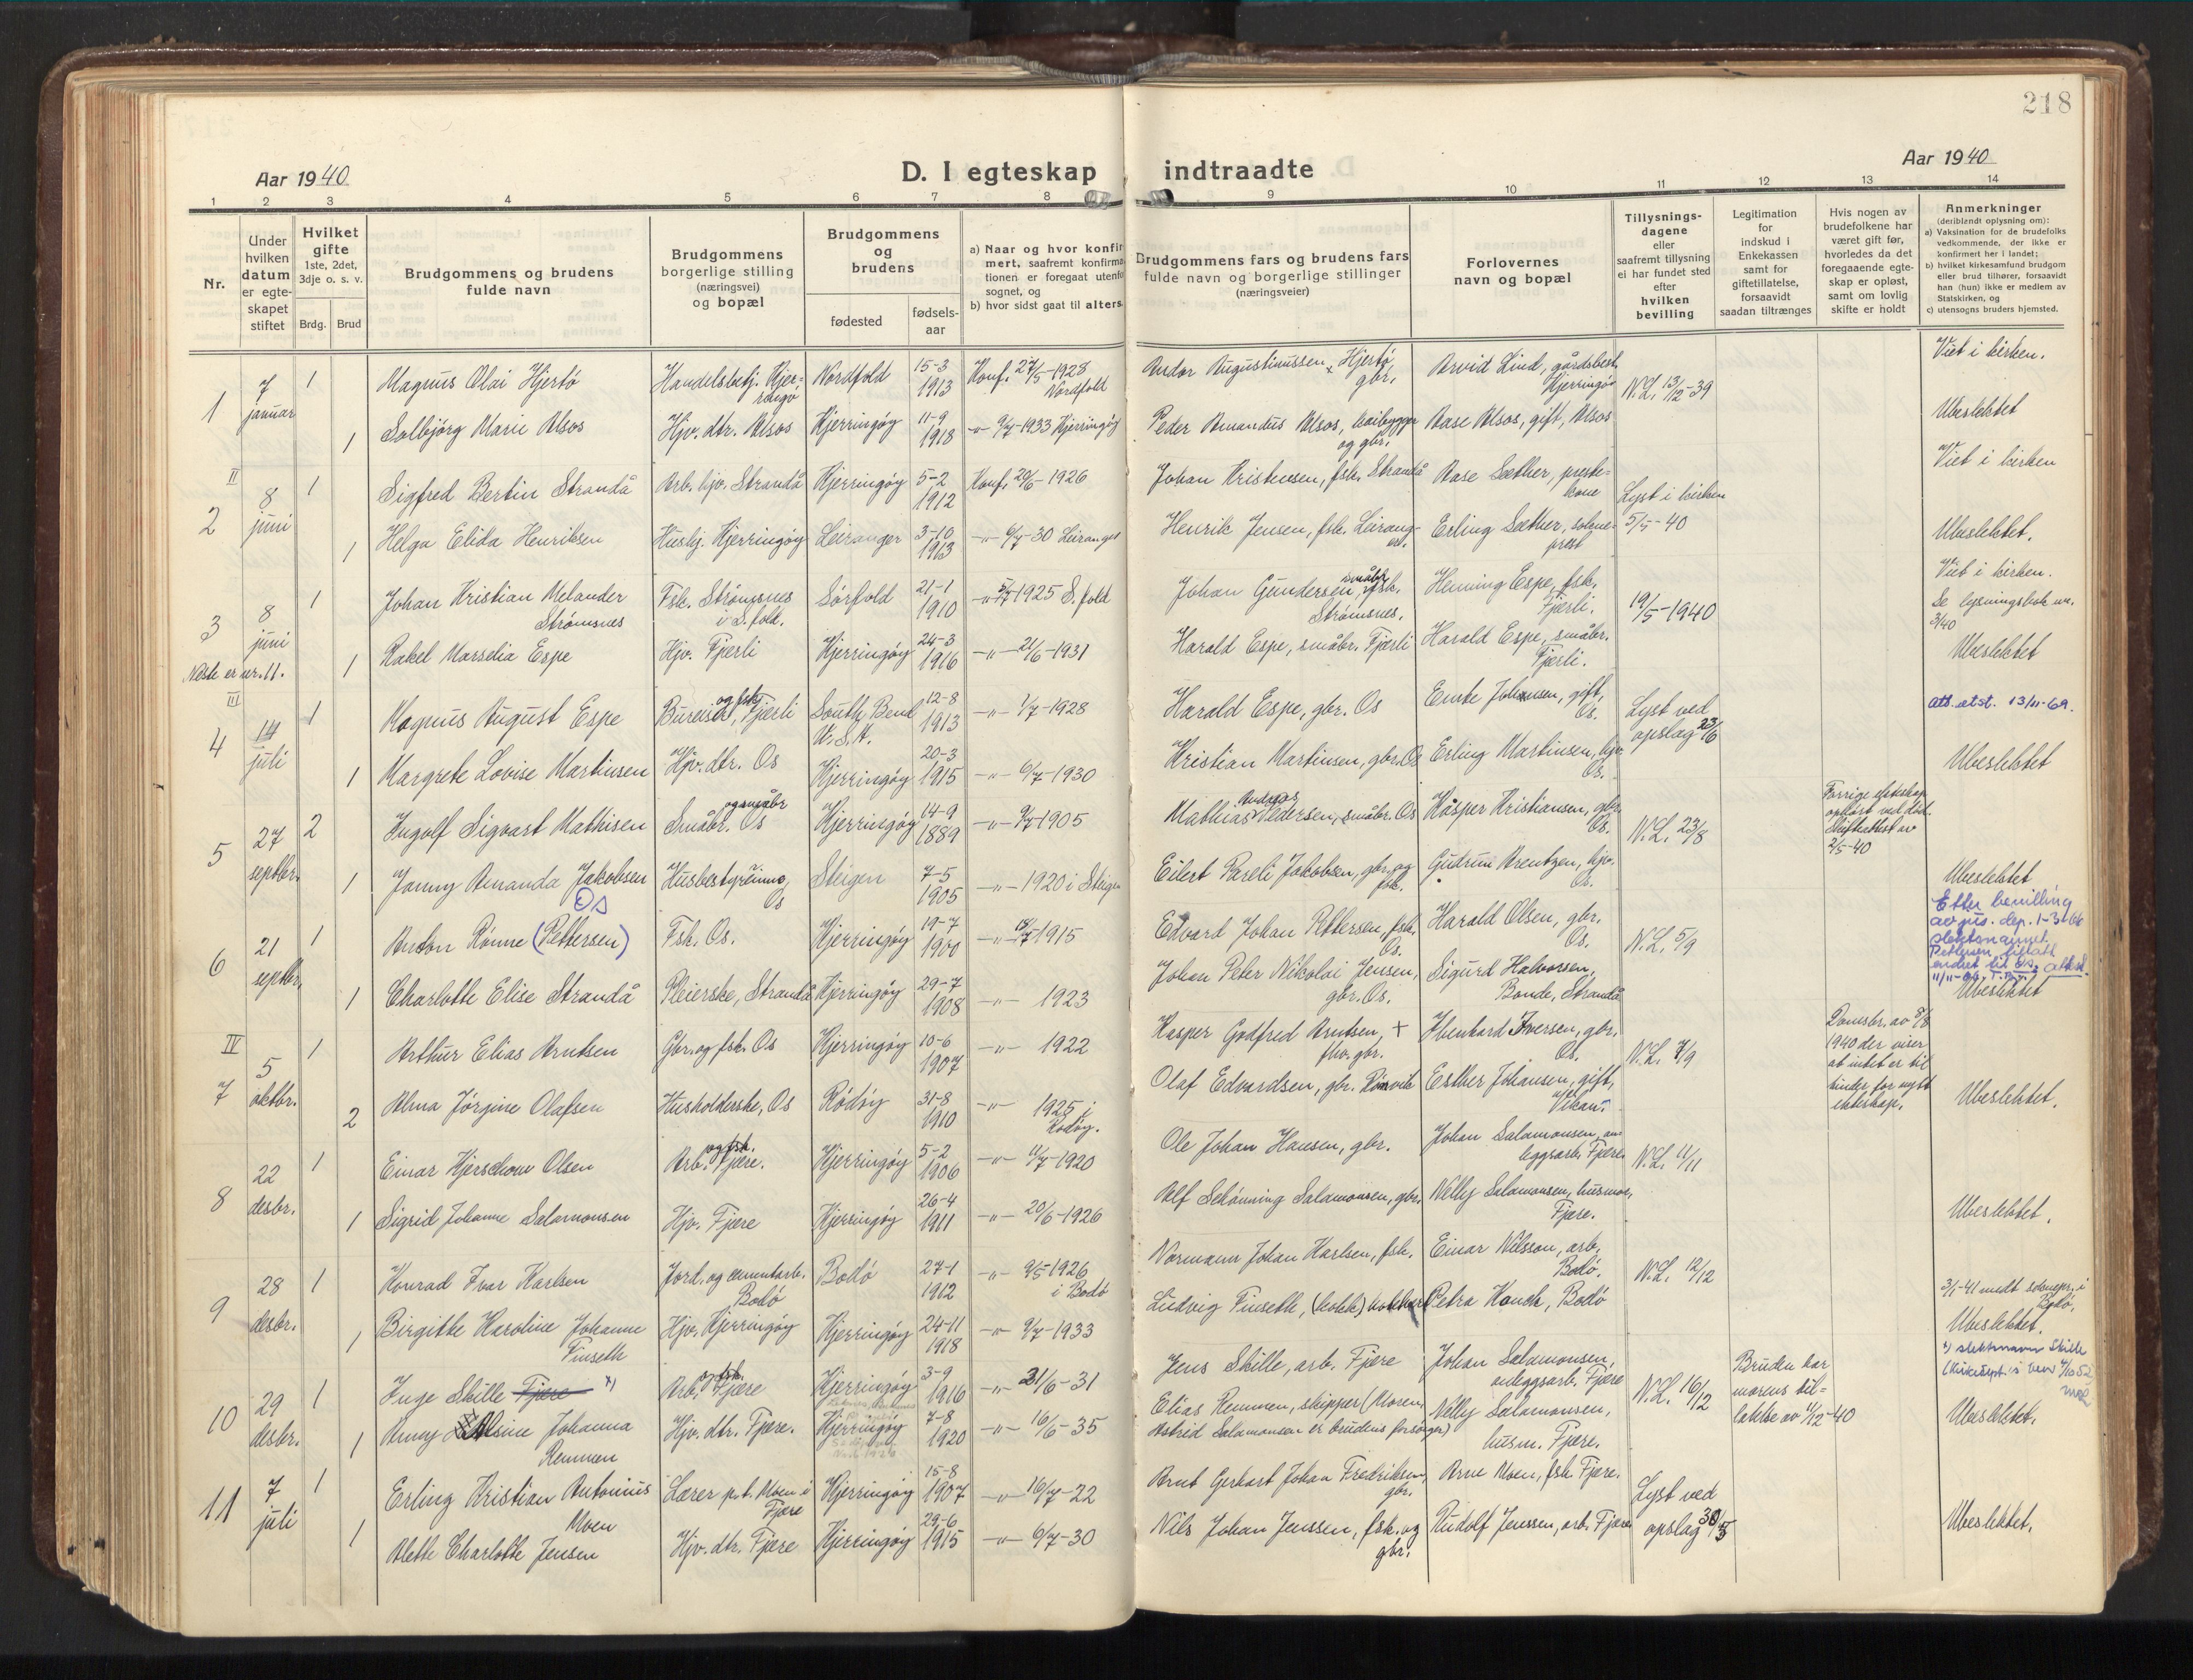 218
Aar 1940
D. I egteskap indtraadte
Aar 1940
1 2 3 4 5 6 7 8 9 10 11 12 13 14
Nr.
Under hvilken datum er egteskapet stiftet
Hvilket gifte
1ste, 2det, 3dje o. s. v.
Brdg. Brud
Brudgommens og brudens fulde navn
Brudgommens borgerlige stilling (næringsvei) og bopæl
Brudgommens og brudens
fødested
fødsels-aar
a) Naar og hvor konfir
mert, saafremt konfirma
tionen er foregaat utenfo
sognet, og
b) hvor sidst gaat til alters.
Brudgommens fars og brudens fars
fulde navn og borgerlige stillinger
(næringsveier)
Forlovernes
navn og bopæl
Tillysnings-
dagene
eller
saafremt tillysning
ei har fundet sted
efter
hvilken
bevilling
Legitimation
for
indskud i
Enkekassen
samt for
giftetillatelse,
forsaavidt
saadan tiltrænges
Hvis nogen av
brudefolkene har
været gift før,
hvorledes da det
foregaaende egte-
skap er opløst,
samt om lovlig
skifte er holdt
Anmerkninger
(deriblandt oplysning om):
a) Vaksination for de brudefolks
vedkommende, der ikke er
konfirmert her i landet;
b) hvilket kirkesamfund brudgom
eller brud tilhører, forsaavidt
han (hun) ikke er medlem av
Statskirken, og
c) utensogns bruders hjemsted.
1 7 januar 1 Magnus Olai Hjertö Handelsbetj. Kjerringøy Nordfold 15-3 1913 Konf. 27/5-1928 Nordfold Andor Augustinussen Hjertö, gbr. Arvid Lind, gårdsbest. Kjerringöy N.L. 13/12-39 Viet i kirken.
1 Solbjörg Marie Alsos Hjv. dtr. Alsos Kjerringöy 11-9 1918 -"- 9/7-1933 Kjerringöy Peder Amandus Alsos, kaibygger og gbr. Aase Alsos, gift, Alsos Ubeslektet
II
2 8 juni 1 Sigfred Bertin Strandå Arb. hjv. Strandå Kjerringöy 5-2 1912 Konf. 20/6-1926 Johan Kristensen, fsk. Strandå Aase Sæther, prestekone Lyst i kirken 5/5-40 Viet i kirken
1 Helga Elida Henriksen Hushj. Kjerringöy Leiranger 3-10 1913 -"- 6/7-30 Leiranger Henrik Jensen, fsk. Leiranger. Erling Sæther, sokneprest Ubeslektet.
3 8 juni 1 Johan Kristian Melander Strømsnes Fsk. Strømsnes i S.fold. Sörfold 21-1 1910 -"- 5/7 1925 S.fold Johan Gundersen, småbr. fsk. Strømsnes. Henning Espe, fsk. Fjærli. 19/5-1940 Viet i kirken.
Se lysningsbok nr. 3/40
1 Rakel Marselia Espe Hjv. Fjærli Kjerringöy 24-3 1916 -"- 21/6-1931 Harald Espe, småbr. Fjærli Harald Espe, småbr. Fjærli. Ubeslektet
Neste er nr. 11.
III
4 14 juli 1 Magnus August Espe Bureiser, og fsk. Fjærli South Bend U.S.A. 12-8 1913 -"- 1/7-1928 Harald Espe, gbr. Os Emte Johansen, gift, Os. Lyst ved opslag 23/6 Att. utst. 13/11-69.
1 Margrete Lovise Martinsen Hjv. dtr. Os Kjerringöy 20-3 1915 -"- 6/7-1930 Kristian Martinsen, gbr. Os Erling Martinsen, hjv. Os. Ubeslektet
5 27 septbr. 2 Ingolf Sigvart Mathisen Småbr. Os Kjerringöy 14-9 1889 -"- 9/7 1905 Mathias Andreas Pedersen, småbr. Os Kasper Kristiansen, gbr. Os. N.L. 23/8 Forrige ekteskap opløst ved död. Skifteattest av 2/5-40
1 Janny Amanda Jakobsen Husbestyrerinne, Os Steigen 7-5 1905 -"- 1920 i Steigen Eilert Pareli Jakobsen, gbr. og fsk. Gudrun Arentzen, hjv. Os. Ubeslektet
6 21 septbr. 1 Anton Rönne (Pettersen) Os Fsk. Os. Kjerringöy 19-7 1900 -"- 18/7 1915 Edvard Johan Pettersen, fsk. Os. Harald Olsen, gbr. Os. N.L. 5/9 Etter bevilling av jus. dep. 1-3-66 slektsnavnet Pettersen tillatt endret til Os.
1 Charlotte Elise Strandå Pleierske, Strandå Kjerringöy 29-7 1908 -"- 1923 Johan Peter Nikolai Jensen, gbr. Os. Sigurd Halvorsen, Bonde, Strandå Ubeslektet
IV
7 5 oktbr. 1 Arthur Elias Arntsen Gbr. og fsk. Os Kjerringöy 10-6 1907 -"- 1922 Kasper Godfred Arntsen, + fhv. gbr. Ibenhard Iversen, gbr. Os. N.L. 7/9 Domsbr. av 8/8 1940 der viser at intet er til hinder for nytt ekteskap.
2 Alma Jörgine Olafsen Husholderske, Os Rödöy 31-8 1910 -"- 1925 i Rödöy. Olaf Edvardsen, gbr. Rönvik Esther Johansen, gift, Vikan. Ubeslektet.
8 22 desbr. 1 Einar Hjerschow Olsen Arb. og fsk. Fjære. Kjerringöy 5-2 1906 -"- 11/7-1920 Ole Johan Hansen, gbr. Johan Salamonsen, anleggsarb. Fjære N.L. 11/11
1 Sigrid Johanne Salamonsen Hjv. Fjære Kjerringöy 26-4 1911 -"- 20/6-1926 Alf Schönning Salamonsen, gbr. Nelly Salamonsen, husmor, Fjære. Ubeslektet.
9 28 desbr. 1 Konrad Ivar Karlsen Jord. og cementarb. Bodö Bodö 27-1 1912 -"- 9/5-1926 i Bodö Normann Johan Karlsen, fsk. Einar Nilsson, arb. Bodö. N.L. 12/12 3/1-41 medt sokneprs. i Bodö.
1 Birgitte Karoline Johanne Finseth Hjv. Kjerringöy Kjerringöy 24-11 1918 -"- 9/7-1933 Ludvig Finseth, (kokk) Petra Hauch, Bodö Ubeslektet.
10 29 desbr. 1 Inge Skille Fjære x) Arb. og fsk. Fjære Kjerringöy 3-9 1916 -"- 21/6-31 Jens Skille, arb. Fjære Johan Salamonsen, anleggsarb. Fjære N.L. 16/12 Bruden har morens tillatelse av 11/12-40 x) slektsnavn Skille
1 Anny Alsine Johanna Remmen Hjv. dtr. Fjære. Kjerringöy 7-8 1920 -"- 16/6-35 Elias Remmen, skipper (Moren, Astrid Salamonsen er brudens forsörger) Nelly Salamonsen, husm. Fjære. Ubeslektet.
11 7 juli 1 Erling Kristian Antonius Moen Lærer p.t. Moen i Fjære Kjerringöy 15-8 1907 -"- 16/7-22 Arnt Gerhart Johan Fredriksen, gbr. Arne Moen, fsk. Fjære. Lyst ved opslag 30/5
1 Alette Charlotte Jensen Hjv. dtr. Fjære Kjerringöy 29-6 1915 -"- 6/7-30 Nils Johan Jenssen, fsk. og gbr. Rudolf Jenssen, arb. Fjære Ubeslektet.